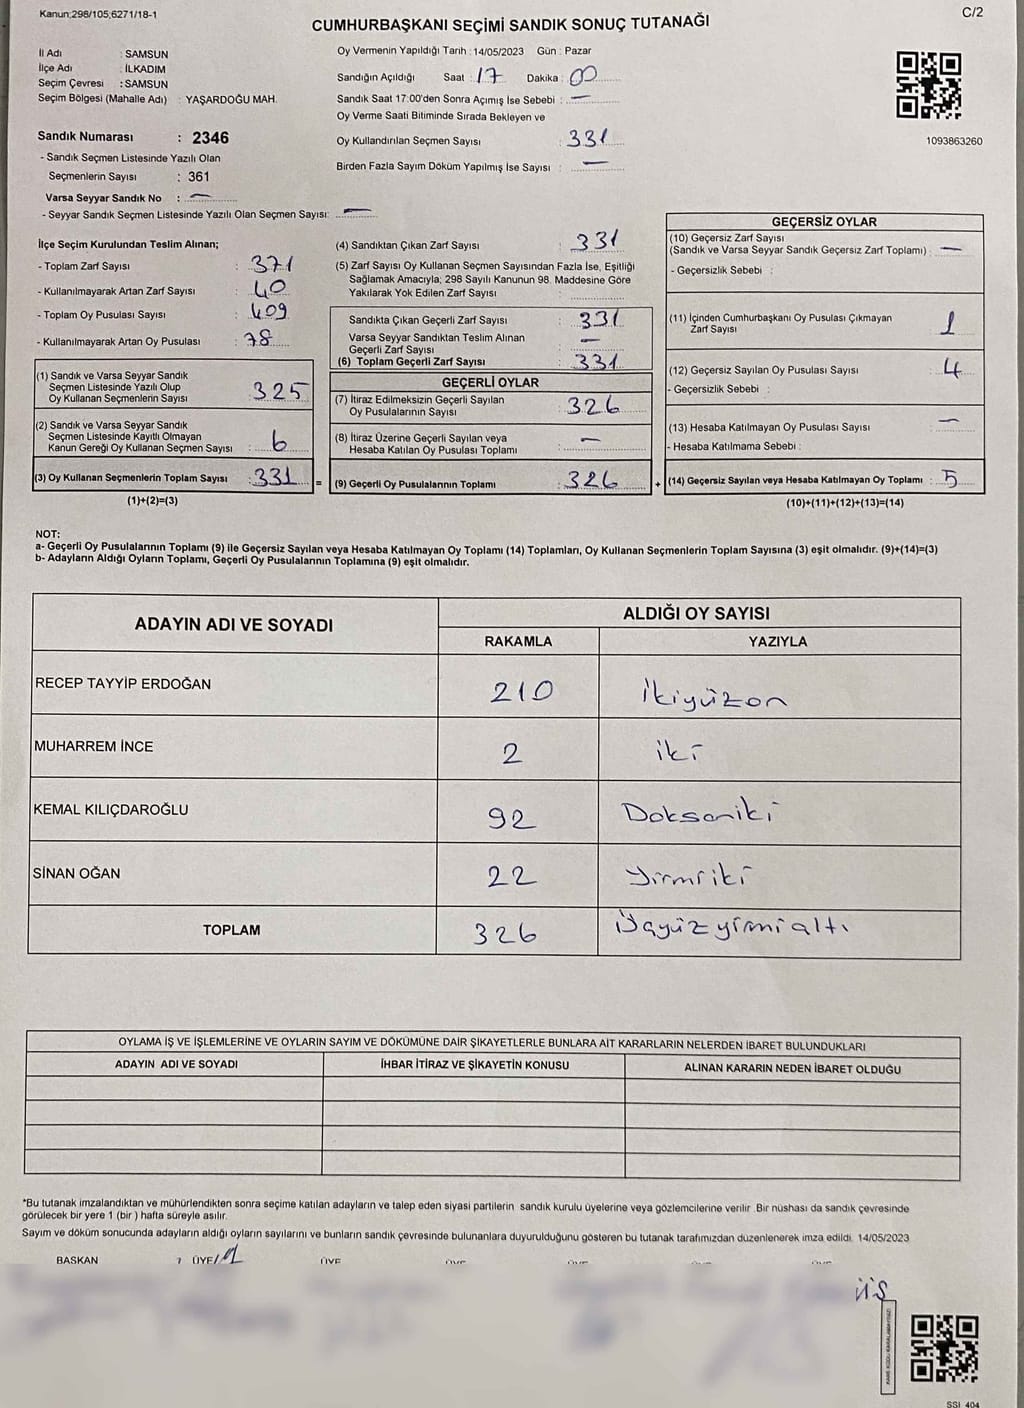 Kanun;298/105;6271/18-1
C/2
CUMHURBAŞKANI SEÇİMİ SANDIK SONUÇ TUTANAĞI
İl Adı : SAMSUN
İlçe Adı : İLKADIM
Seçim Çevresi : SAMSUN
Seçim Bölgesi (Mahalle Adı) : YAŞARDOĞU MAH.
Oy Vermenin Yapıldığı Tarih : 14/05/2023 Gün : Pazar
Sandığın Açıldığı Saat : 17 Dakika : 00
Sandık Saat 17:00'den Sonra Açımış İse Sebebi : —
Oy Verme Saati Bitiminde Sırada Bekleyen ve
Oy Kullandırılan Seçmen Sayısı : 331
Birden Fazla Sayım Döküm Yapılmış İse Sayısı : —
1093863260
Sandık Numarası : 2346
- Sandık Seçmen Listesinde Yazılı Olan
Seçmenlerin Sayısı : 361
Varsa Seyyar Sandık No : —
- Seyyar Sandık Seçmen Listesinde Yazılı Olan Seçmen Sayısı: —
İlçe Seçim Kurulundan Teslim Alınan;
- Toplam Zarf Sayısı : 371
- Kullanılmayarak Artan Zarf Sayısı : 40
- Toplam Oy Pusulası Sayısı : 409
- Kullanılmayarak Artan Oy Pusulası : 78
(1) Sandık ve Varsa Seyyar Sandık
Seçmen Listesinde Yazılı Olup
Oy Kullanan Seçmenlerin Sayısı : 325
(2) Sandık ve Varsa Seyyar Sandık
Seçmen Listesinde Kayıtlı Olmayan
Kanun Gereği Oy Kullanan Seçmen Sayısı : 6
(3) Oy Kullanan Seçmenlerin Toplam Sayısı : 331 =
(1)+(2)=(3)
(4) Sandıktan Çıkan Zarf Sayısı : 331
(5) Zarf Sayısı Oy Kullanan Seçmen Sayısından Fazla İse, Eşitliği
Sağlamak Amacıyla; 298 Sayılı Kanunun 98. Maddesine Göre
Yakılarak Yok Edilen Zarf Sayısı :
Sandıkta Çıkan Geçerli Zarf Sayısı : 331
Varsa Seyyar Sandıktan Teslim Alınan
Geçerli Zarf Sayısı : —
(6) Toplam Geçerli Zarf Sayısı : 331
GEÇERLİ OYLAR
(7) İtiraz Edilmeksizin Geçerli Sayılan
Oy Pusulalarının Sayısı : 326
(8) İtiraz Üzerine Geçerli Sayılan veya
Hesaba Katılan Oy Pusulası Toplamı : —
(9) Geçerli Oy Pusulalarının Toplamı : 326 +
GEÇERSİZ OYLAR
(10) Geçersiz Zarf Sayısı
(Sandık ve Varsa Seyyar Sandık Geçersiz Zarf Toplamı) : —
- Geçersizlik Sebebi :
(11) İçinden Cumhurbaşkanı Oy Pusulası Çıkmayan
Zarf Sayısı : 1
(12) Geçersiz Sayılan Oy Pusulası Sayısı : 4
- Geçersizlik Sebebi :
(13) Hesaba Katılmayan Oy Pusulası Sayısı : —
- Hesaba Katılmama Sebebi :
(14) Geçersiz Sayılan veya Hesaba Katılmayan Oy Toplamı : 5
(10)+(11)+(12)+(13)=(14)
NOT:
a- Geçerli Oy Pusulalarının Toplamı (9) ile Geçersiz Sayılan veya Hesaba Katılmayan Oy Toplamı (14) Toplamları, Oy Kullanan Seçmenlerin Toplam Sayısına (3) eşit olmalıdır. (9)+(14)=(3)
b- Adayların Aldığı Oyların Toplamı, Geçerli Oy Pusulalarının Toplamına (9) eşit olmalıdır.
ADAYIN ADI VE SOYADI ALDIĞI OY SAYISI
RAKAMLA YAZIYLA
RECEP TAYYİP ERDOĞAN 210 İkiyüzon
MUHARREM İNCE 2 iki
KEMAL KILIÇDAROĞLU 92 Doksaniki
SİNAN OĞAN 22 Yirmiiki
TOPLAM 326 Üçyüzyirmialtı
OYLAMA İŞ VE İŞLEMLERİNE VE OYLARIN SAYIM VE DÖKÜMÜNE DAİR ŞİKAYETLERLE BUNLARA AİT KARARLARIN NELERDEN İBARET BULUNDUKLARI
ADAYIN ADI VE SOYADI İHBAR İTİRAZ VE ŞİKAYETİN KONUSU ALINAN KARARIN NEDEN İBARET OLDUĞU
*Bu tutanak imzalandıktan ve mühürlendikten sonra seçime katılan adayların ve talep eden siyasi partilerin sandık kurulu üyelerine veya gözlemcilerine verilir. Bir nüshası da sandık çevresinde
görülecek bir yere 1 (bir ) hafta süreyle asılır.
Sayım ve döküm sonucunda adayların aldığı oyların sayılarını ve bunların sandık çevresinde bulunanlara duyurulduğunu gösteren bu tutanak tarafımızdan düzenlenerek imza edildi. 14/05/2023
BAŞKAN ÜYE ÜYE ÜYE ÜYE ÜYE ÜYE
SSI_404